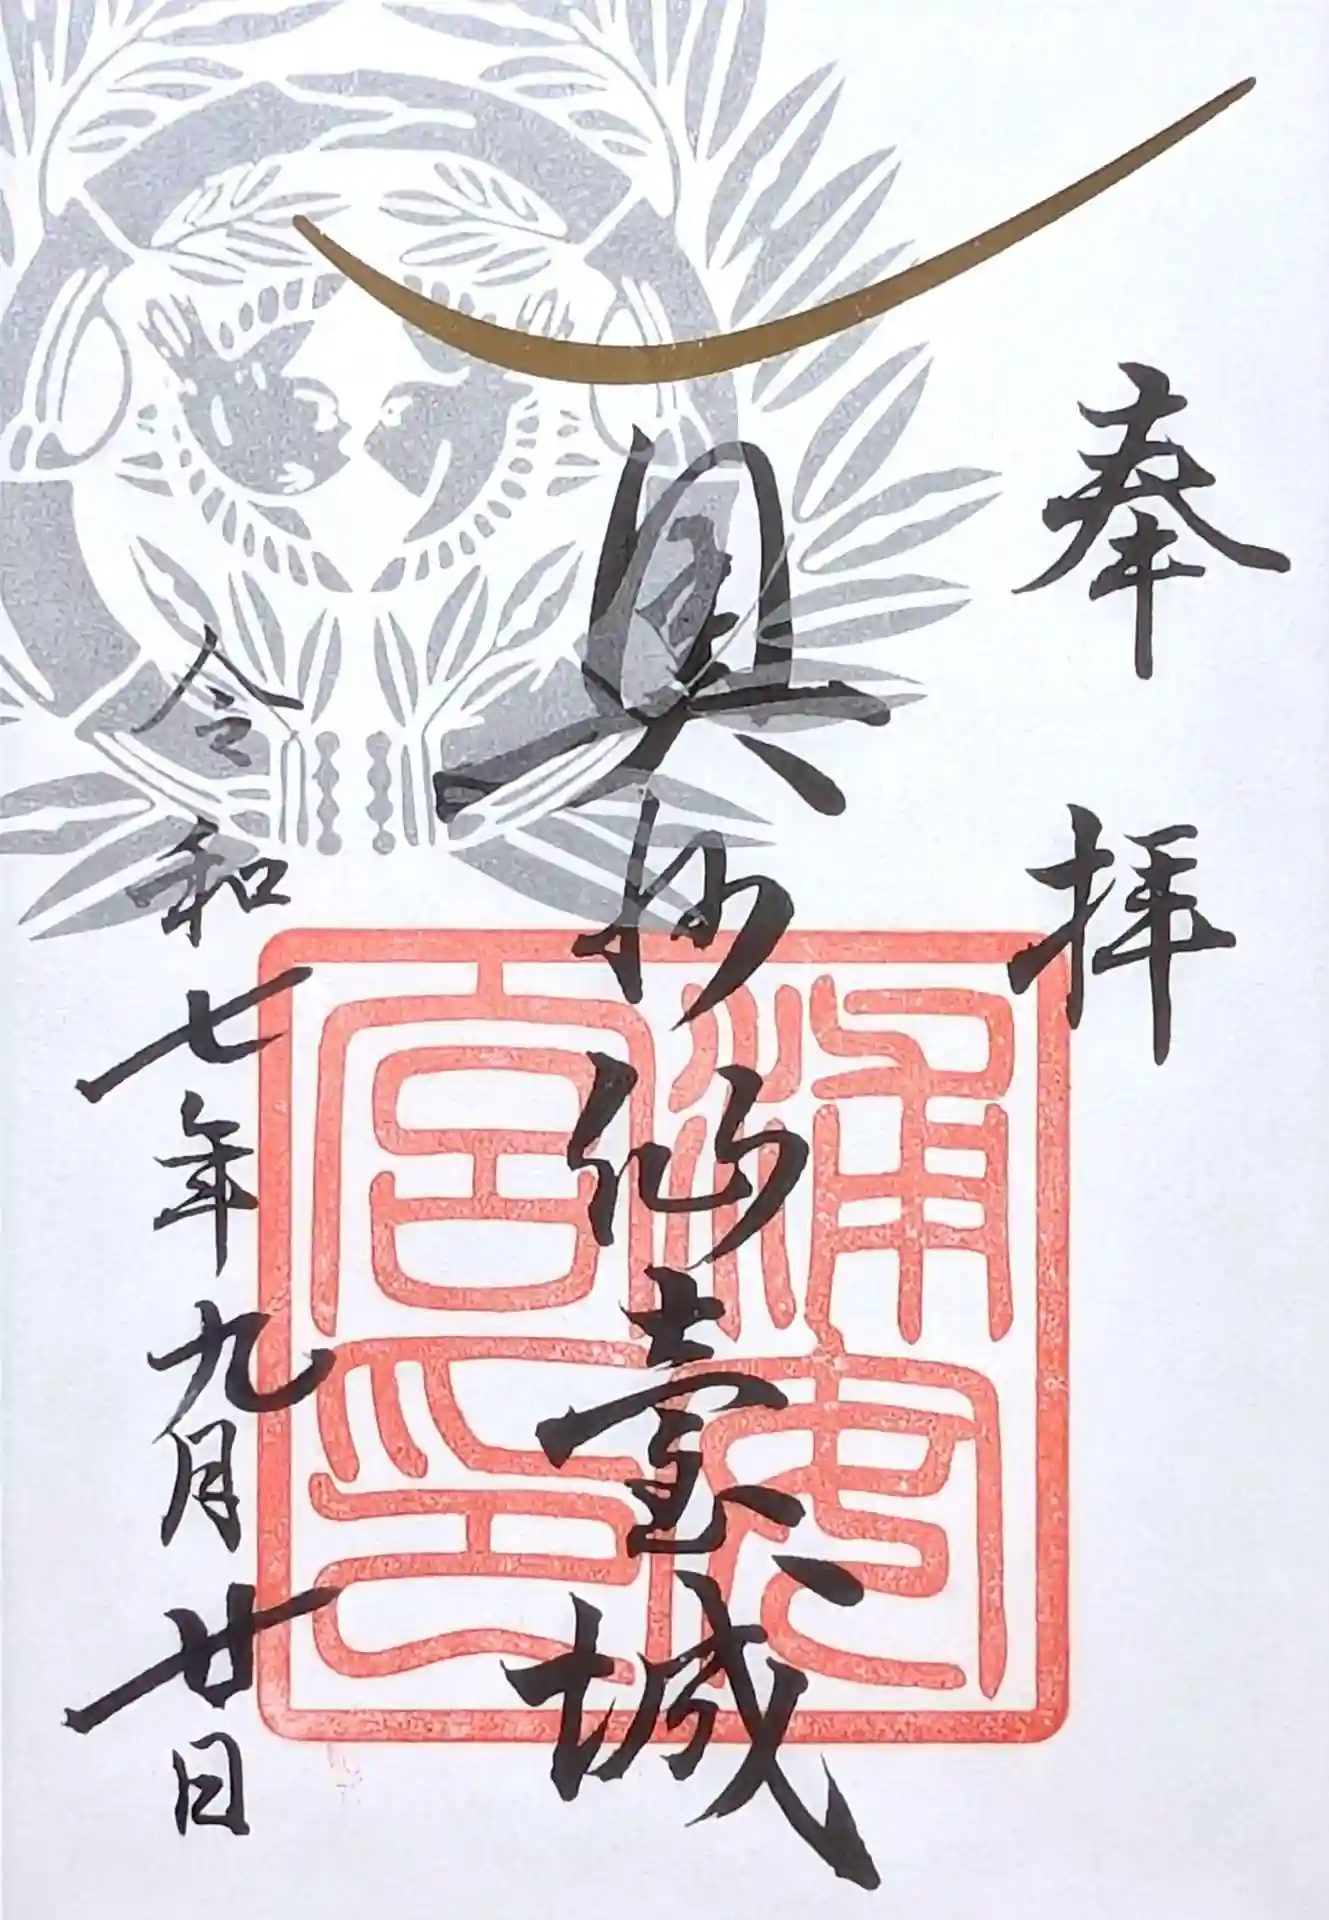 奉拝
奥州仙臺城
令和七年九月廿日
浦安
宮印